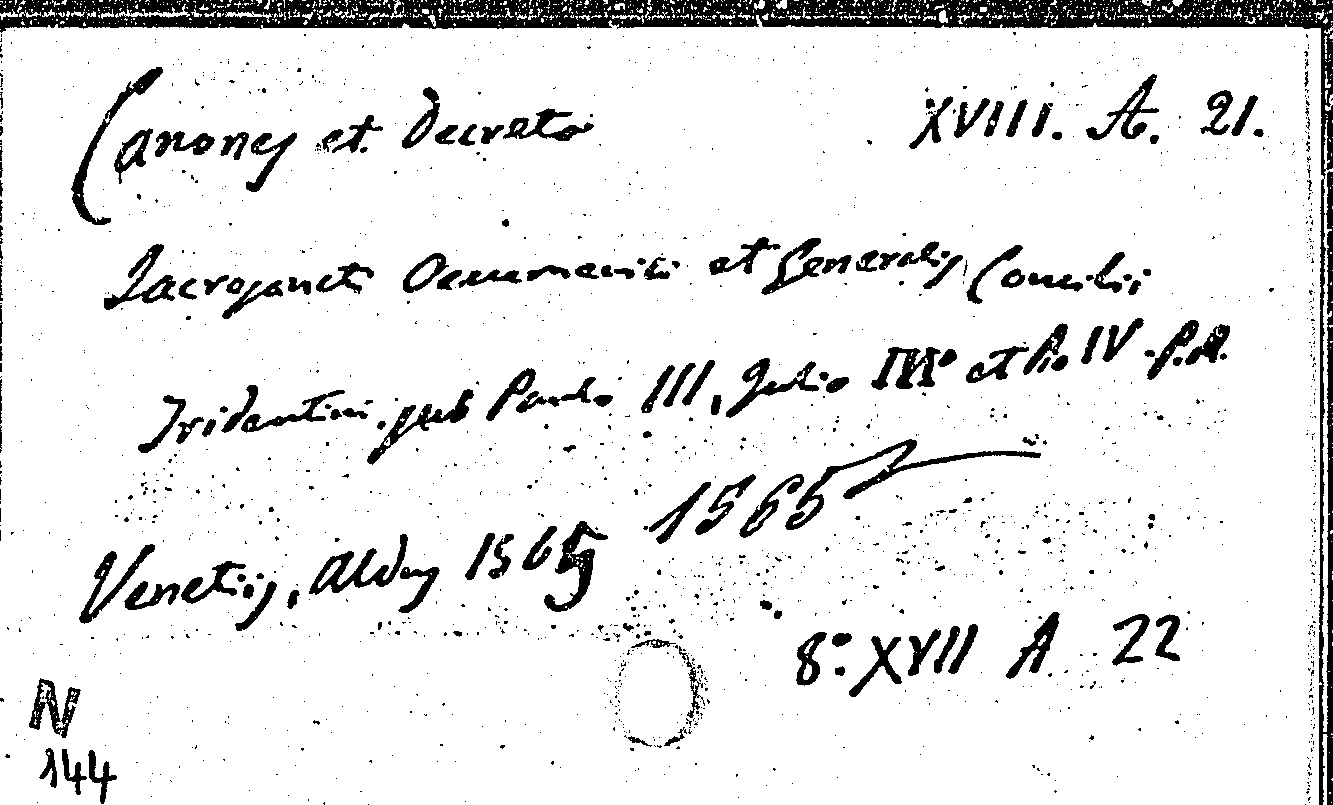 Canones et Decreta XVIII. A. 21.
Sacrosancti Oecumenici et Generalis Concilii
Tridentini sub Paulo III, Julio III et Pio IV. P.M.
Venetiis, Aldus 1565 1565
8º XVII A 22
N
144